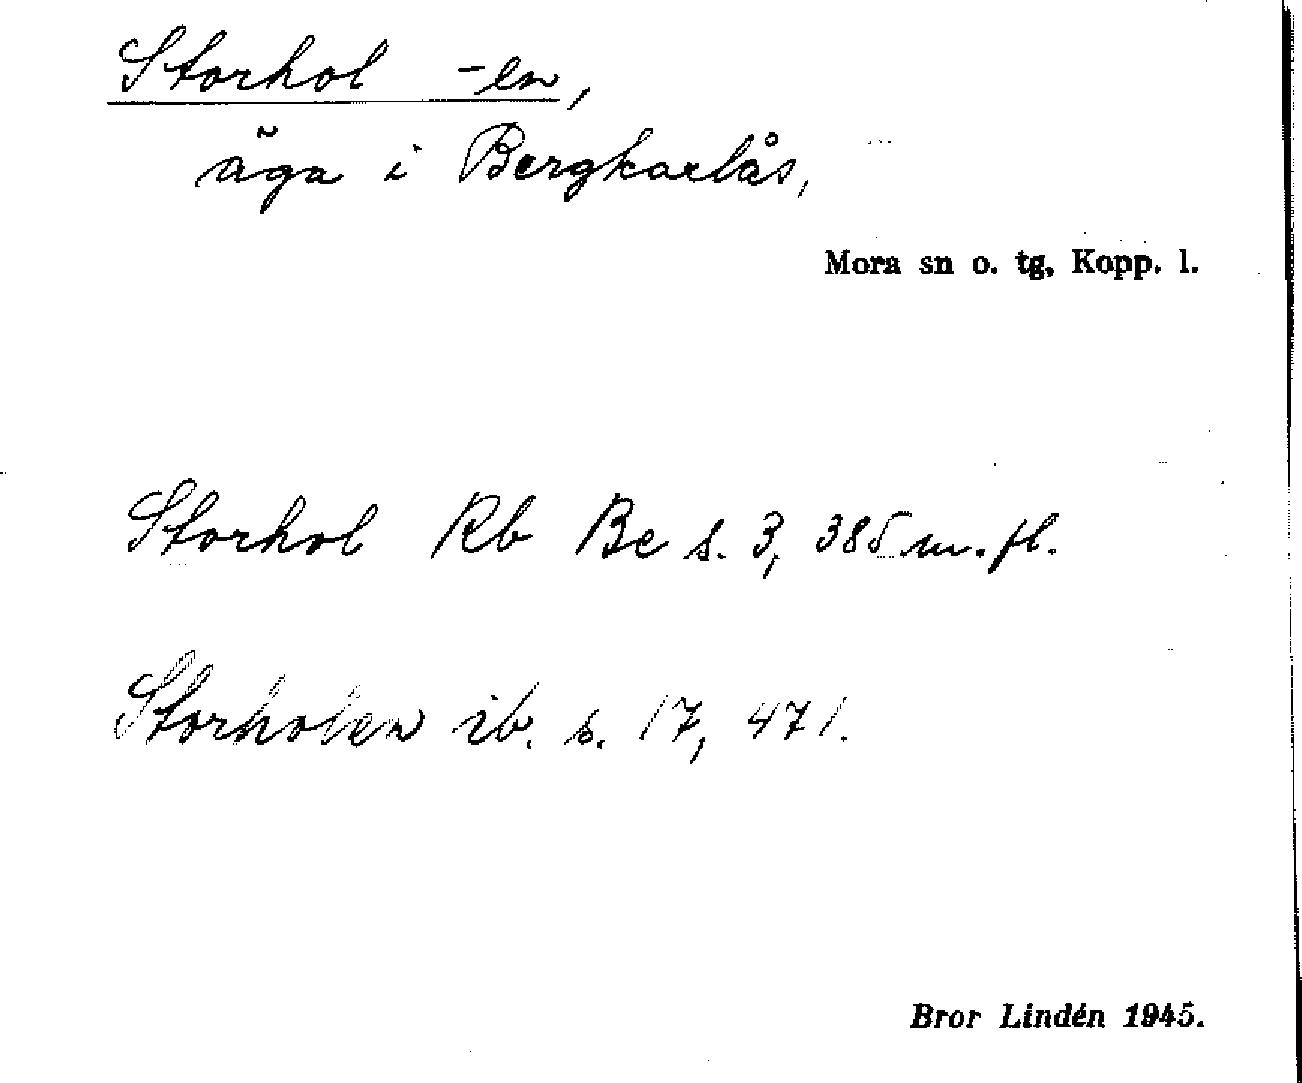 Storhol -en,
äga i Bergkarlås,
Mora sn o. tg, Kopp. l.
Storhol Rb Be s. 3, 385 m. fl.
Storholen ib. s. 17, 471.
Bror Lindén 1945.